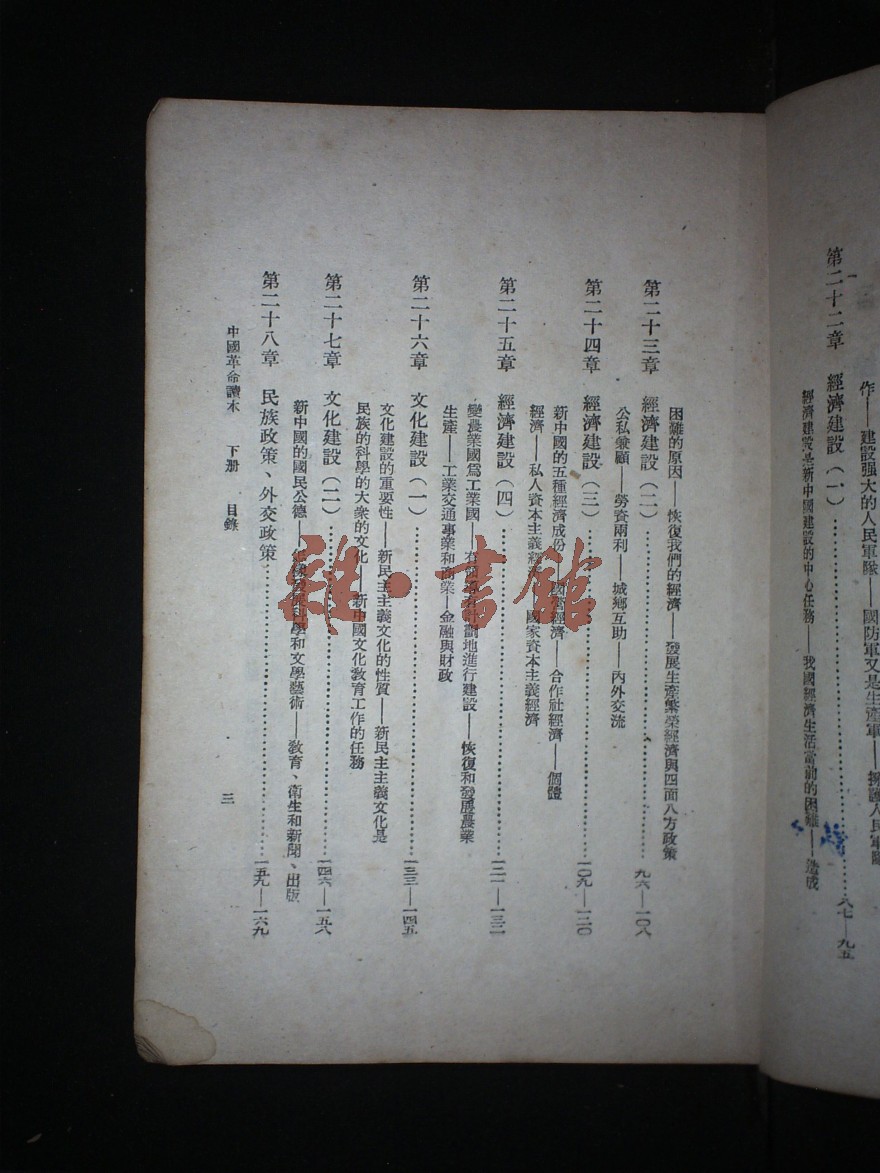 作——建設强大的人民軍隊——國防軍又是生產軍——擁護人民軍隊
第二十二章 經濟建設(一)……八七—九五
經濟建設是新中國建設的中心任務——我國經濟生活當前的困難——造成
困難的原因——恢復我們的經濟——發展生產繁榮經濟與四面八方政策
第二十三章 經濟建設(二)……九六—一〇八
公私兼顧——勞資兩利——城鄉互助——內外交流
第二十四章 經濟建設(三)……一〇九—一二〇
新中國的五種經濟成份——國營經濟——合作社經濟——個體
經濟——私人資本主義經濟——國家資本主義經濟
第二十五章 經濟建設(四)……一二一—一三二
變農業國爲工業國——有計劃地進行建設——恢復和發展農業
生產——工業交通事業和商業——金融與財政
第二十六章 文化建設(一)……一三三—一四五
文化建設的重要性——新民主主義文化的性質——新民主主義文化是
民族的科學的大衆的文化——新中國文化教育工作的任務
第二十七章 文化建設(二)……一四六—一五八
新中國的國民公德——發展科學和文學藝術——教育、衛生和新聞、出版
第二十八章 民族政策、外交政策……一五九—一六九
中國革命讀本 下册 目錄
三
雜·書館